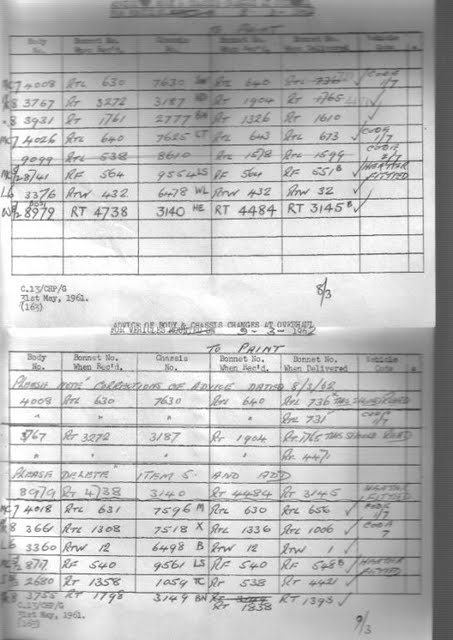 TO PAINT
Body No. Bonnet No. When Rec'd. Chassis No. Bonnet No. When Rec'd. Bonnet No. When Delivered Vehicle Code
MC7 4008 RTL 630 7630 RTL 640 RTL 736 ✓
R8 3767 RT 3272 3187 RT 1904 RT 1765 ✓
8 3931 RT 1761 2777 RT 1326 RT 1610 ✓
MC7 4026 RTL 640 7625 CT RTL 643 RTL 673 ✓ 1/7
9099 RTL 538 8610 RTL 1578 RTL 1599
8741 RF 564 9554 LS RF 564 RF 551 B ✓ HEATER FITTED
L6 3376 RTW 432 6478 WL RTW 432 RTW 32 ✓
8979 RT 4738 3140 HE RT 4484 RT 3145 B ✓
C.13/CHP/G
31st May, 1961.
(163)
8/3
ADVICE OF BODY & CHASSIS CHANGES AT OVERHAUL
FOR VEHICLES 9-3-1962
TO PAINT
Body No. Bonnet No. When Rec'd. Chassis No. Bonnet No. When Rec'd. Bonnet No. When Delivered Vehicle Code
PLEASE NOTE CORRECTIONS OF ADVICE DATED 8/3/62
4008 RTL 630 7630 RTL 640 RTL 736 THIS SHOULD READ
" " " " RTL 731
3767 RT 3272 3187 RT 1904 RT 1765 THIS SHOULD READ
" " " " RT 4471
PLEASE DELETE ITEM 5 AND ADD
8979 RT 4738 3140 RT 4484 RT 3145 HEATER FITTED
MC7 4018 RTL 631 7596 M RTL 630 RTL 656 ✓
R8 3661 RTL 1308 7518 X RTL 1336 RTL 1006 ✓
L6 3360 RTW 12 6498 B RTW 12 RTW 1 ✓
8717 RF 540 9561 LS RF 540 RF 548 B ✓ HEATER FITTED
2680 RT 1358 1059 TC RT 538 RT 4421 ✓
R8 3755 RT 1798 3149 BN RT 1838 RT 1393 ✓
C.13/CHP/G
31st May, 1961.
(163)
9/3